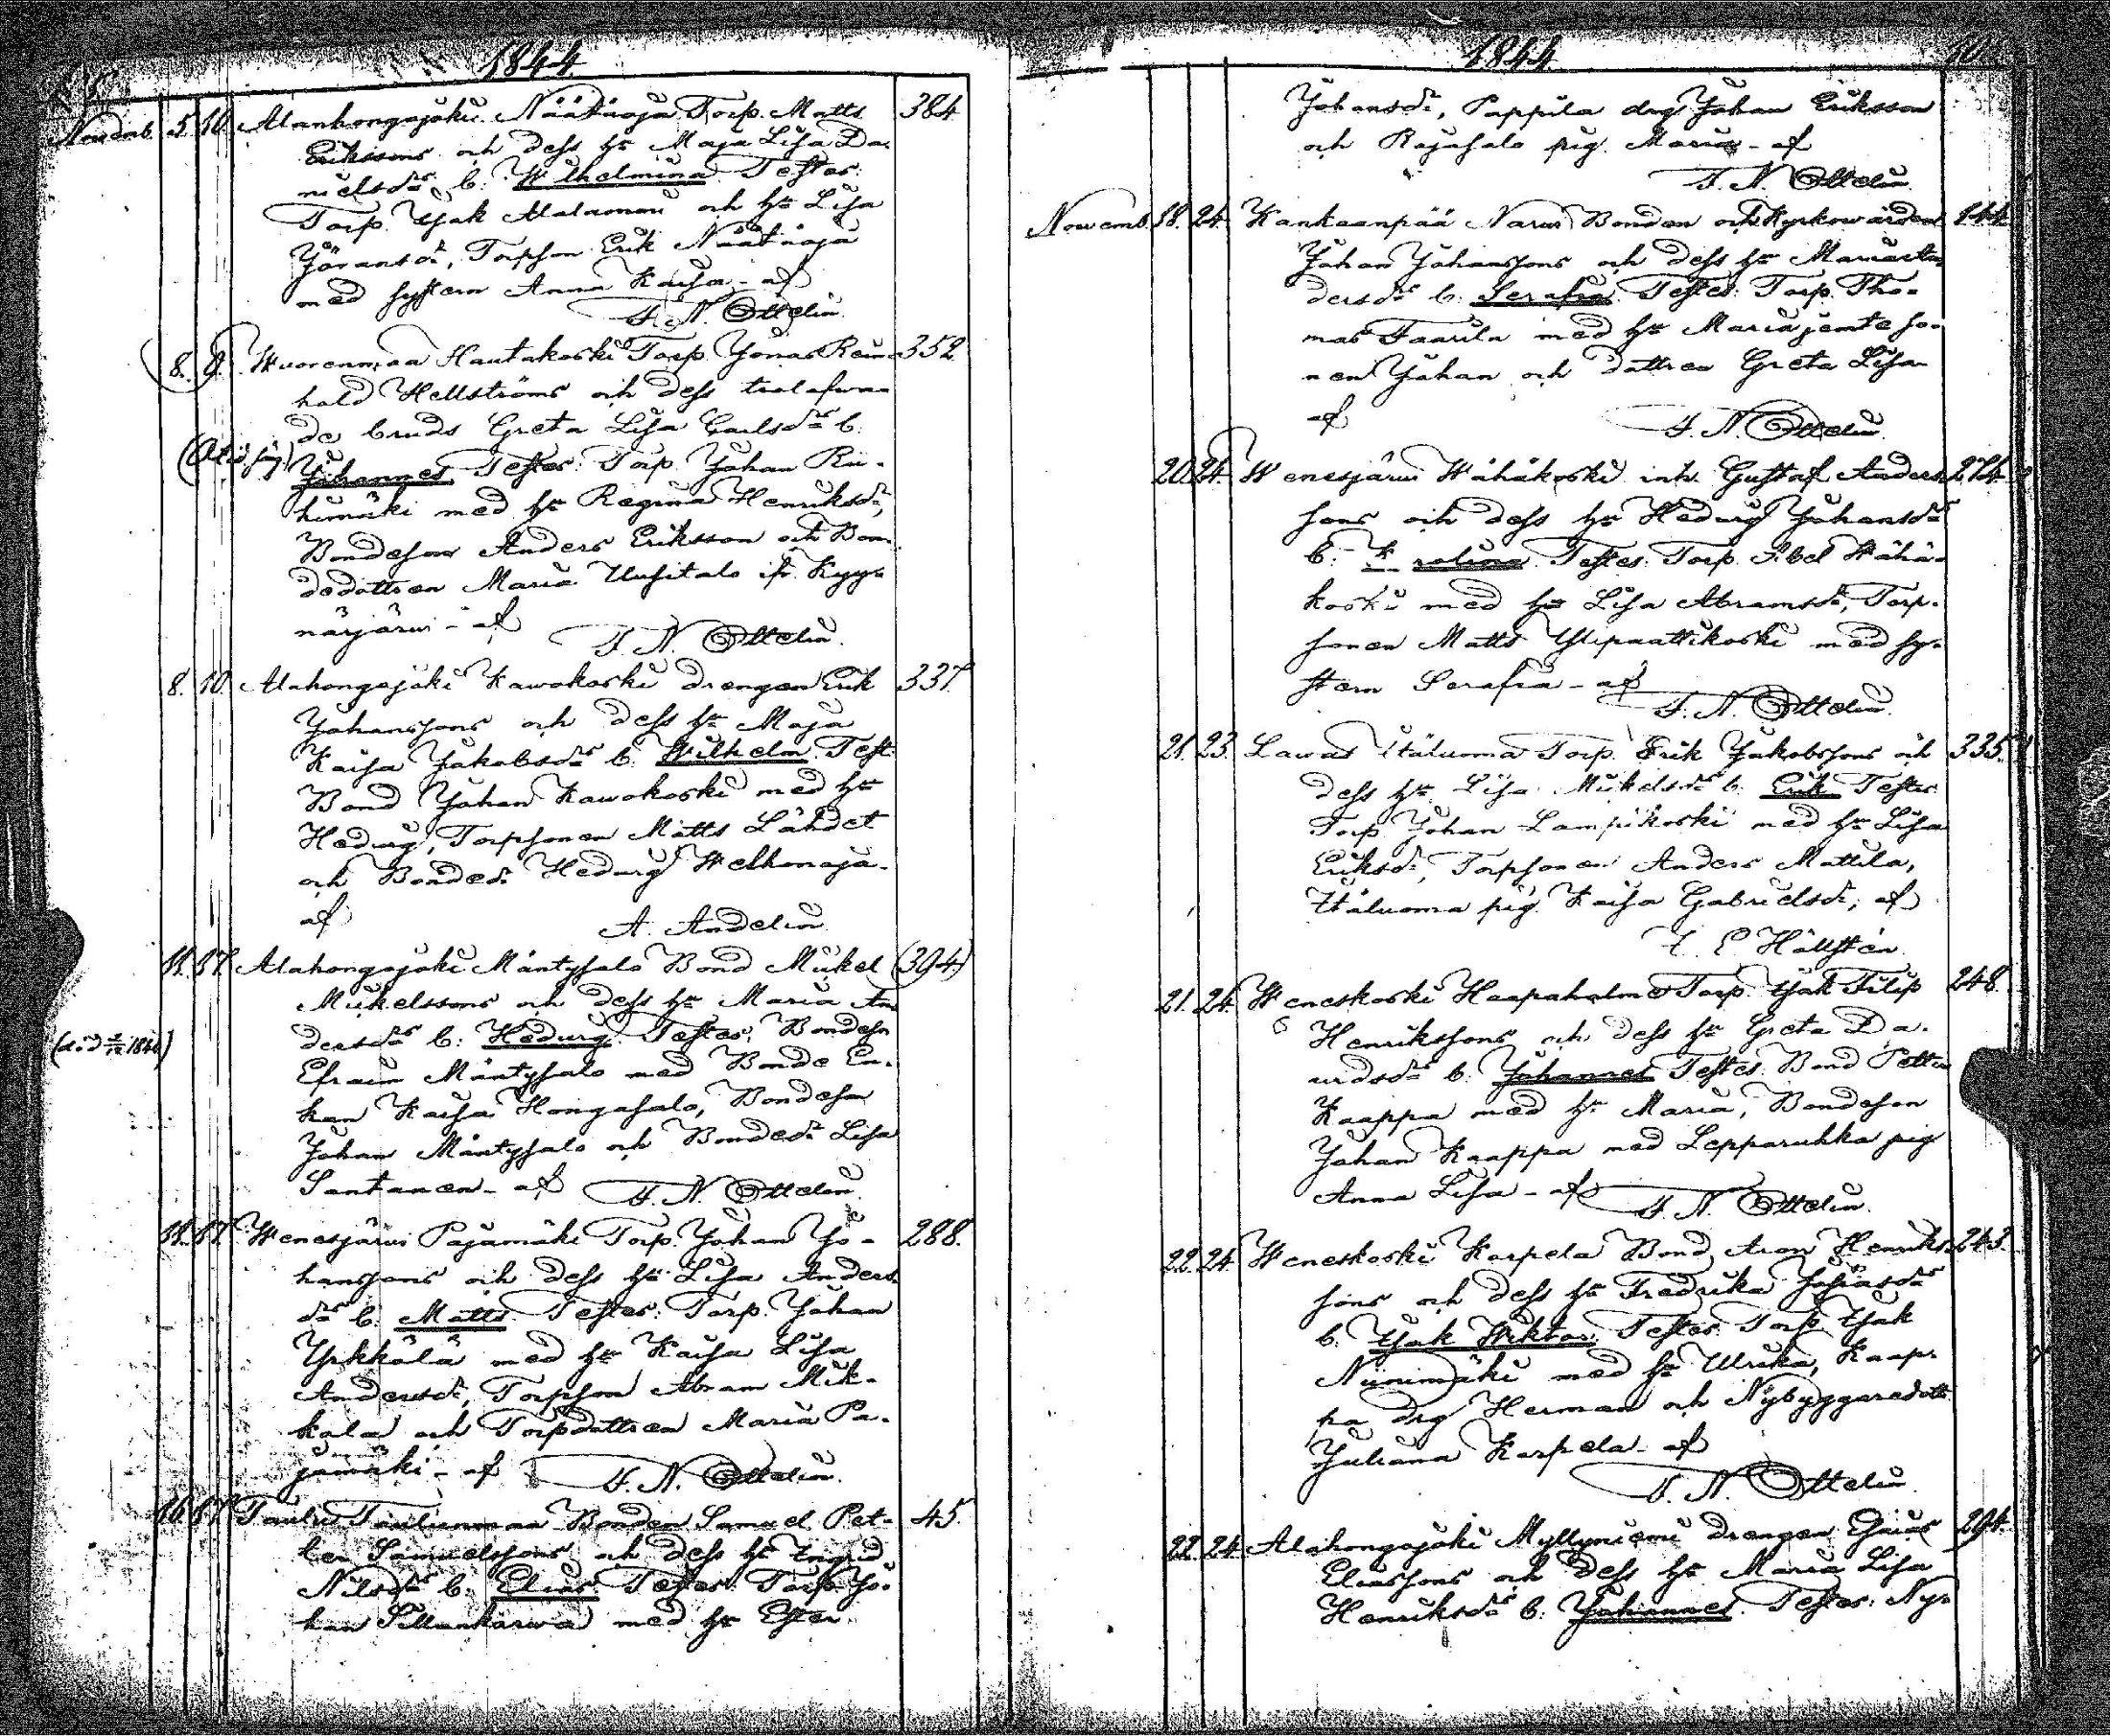 1844
Novemb. 5. 10. Alanhongojoki Näätäoja Torp. Matts 384
Erikssons och dess h:u Maja Lisa Da-
nielsd:r b: Wilhelmina Testes:
Torp. Isak Alaluoma och h:u Lisa
Jöransd:r, Torpson Erik Näätäoja
med systern Anna Kaisa - af
F. N. Ottelin.
8. 9. Wuorenmaa Hautakoski Torp. Jonas Rein- 352
hold Hellströms och dess trolofwa-
de bruds Greta Lisa Carlsd:r b:
Johannes Testes: Torp. Johan Rii-
himäki med h:u Regina Henriksd:r,
Bondeson Anders Eriksson och Bon-
dedottren Maria Uusitalo ifr. Kyy-
närjärwi - af
F. N. Ottelin.
8. 10. Alahongojoki Kawokoski drengen Erik 337.
Johanssons och dess h:u Maja
Kaisa Jakobsd:r b: Wilhelm Test:
Bond Johan Kawokoski med h:u
Hedwig, Torpsonen Matts Lähdet
och Bonded:r Hedwig Welhonoja -
af A. Andelin
11. 17. Alahongojoki Mäntysalo Bond Mikel (394)
Mikelssons och dess h:u Maria An-
dersd:r b: Hedwig. Testes: Bondeson
(död 1846)
Efraim Mäntysalo med Bonde En-
kan Kaisa Hongasalo, Bondeson
Johan Mäntysalo och Bonded:r Lisa
Santanen - af F. N. Ottelin.
11. 17. Wenesjärwi Pajamäki Torp. Johan Jo- 288.
hanssons och dess h:u Lisa Anders-
d:r b: Matts. Testes: Torp. Johan
Yrkkälä med h:u Kaisa Lisa
Andersd:r, Torpson Abram Mik-
kola och Torpdottren Maria Pa-
jamäki - af F. N. Ottelin.
16. 17. Taulu Taulunmaa Bonden Samuel Pet- 45.
ter Samuelssons och dess h:u Ingrid
Nilsd:r b: Elias Testes: Torp. Jo-
han Sillankorwa med h:u Ester
1844
Johansd:r, Pappila drg Johan Eriksson
och Rajasalo pig. Maria - af
F. N. Ottelin.
Novemb. 18. 24. Kankaanpää Narwi Bonden och Kyrkowärden 144
Johan Johanssons och dess h:u Maria An-
dersd:r b: Serafia Testes: Torp. Tho-
mas Taarila med h:u Maria jemte so-
nen Johan och Dottren Greta Lisa
af F. N. Ottelin.
20. 24. Wenesjärwi Wähäkoski inh. Gustaf Anders- 274.
sons och dess h:u Hedwig Johansd:r
b: K rolina Testes: Torp. Abel Wähä-
koski med h:u Lisa Abramsd:r, Torp-
sonen Matts Ylipaattikoski med sy-
stern Serafia - af
F. N. Ottelin.
21. 23. Lawas Itäluoma Torp. Erik Jakobssons och 335.
dess h:u Lisa Mikelsd:r b: Erik Testes:
Torp. Johan Lampikoski med h:u Lisa
Eriksd:r, Torpsonen Anders Mattila,
Itäluoma pig. Kaisa Gabrielsd:r, af
Hällstén
21. 24. Weneskoski Haapaholma Torp. Isak Filip 248.
Henrikssons och dess h:u Greta Da-
widsd:r b: Johannes Testes: Bond Petter
Kaappa med h:u Maria, Bondeson
Johan Kaappa med Lepparuhka pig
Anna Lisa - af F. N. Ottelin.
22. 24. Weneskoski Karpela Bond Aron Henriks- 243.
sons och dess h:u Fredrika Josiasd:r
b: Isak Wiktor Testes: Torp. Isak
Niinimäki med h:u Ulrika, Kaap-
pa drg Herman och Nybyggaredott.
Juliana Karpela - af
F. N. Ottelin.
22. 24. Alahongojoki Myllyniemi drengen Esaias 294.
Eliassons och dess h:u Maria Lisa
Henriksd:r b: Johannes. Testes: Ny-